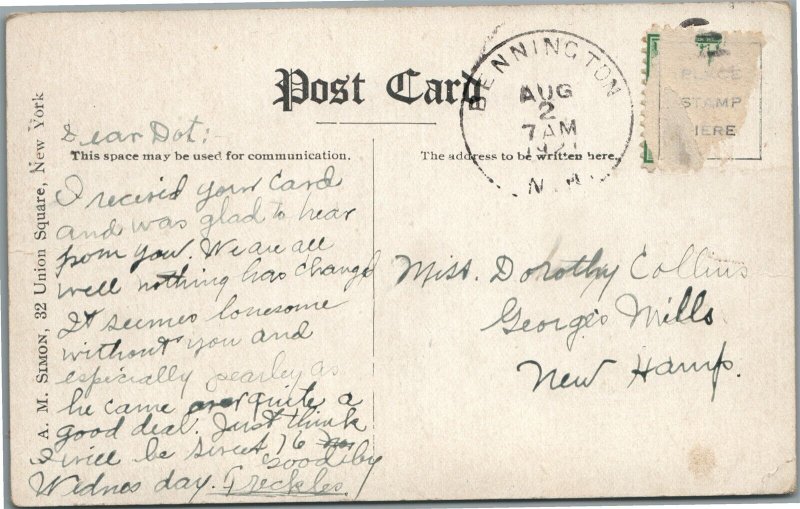 Post Card
BENNINGTON
AUG
2
7AM
1921
N.H.
PLACE
STAMP
HERE
A. M. SIMON, 32 Union Square, New York
This space may be used for communication.
The address to be written here.
Dear Dot:-
I receivd your card
and was glad to hear
from you. We are all
well nothing has changd
It seemes lonesome
without you and
especially pearley as
he came over quite a
good deal. Just think
I will be sweet 16
Wednes day. Good by
Freckles.
Miss. Dorothy Collins
Georges Mills
New Hamp.